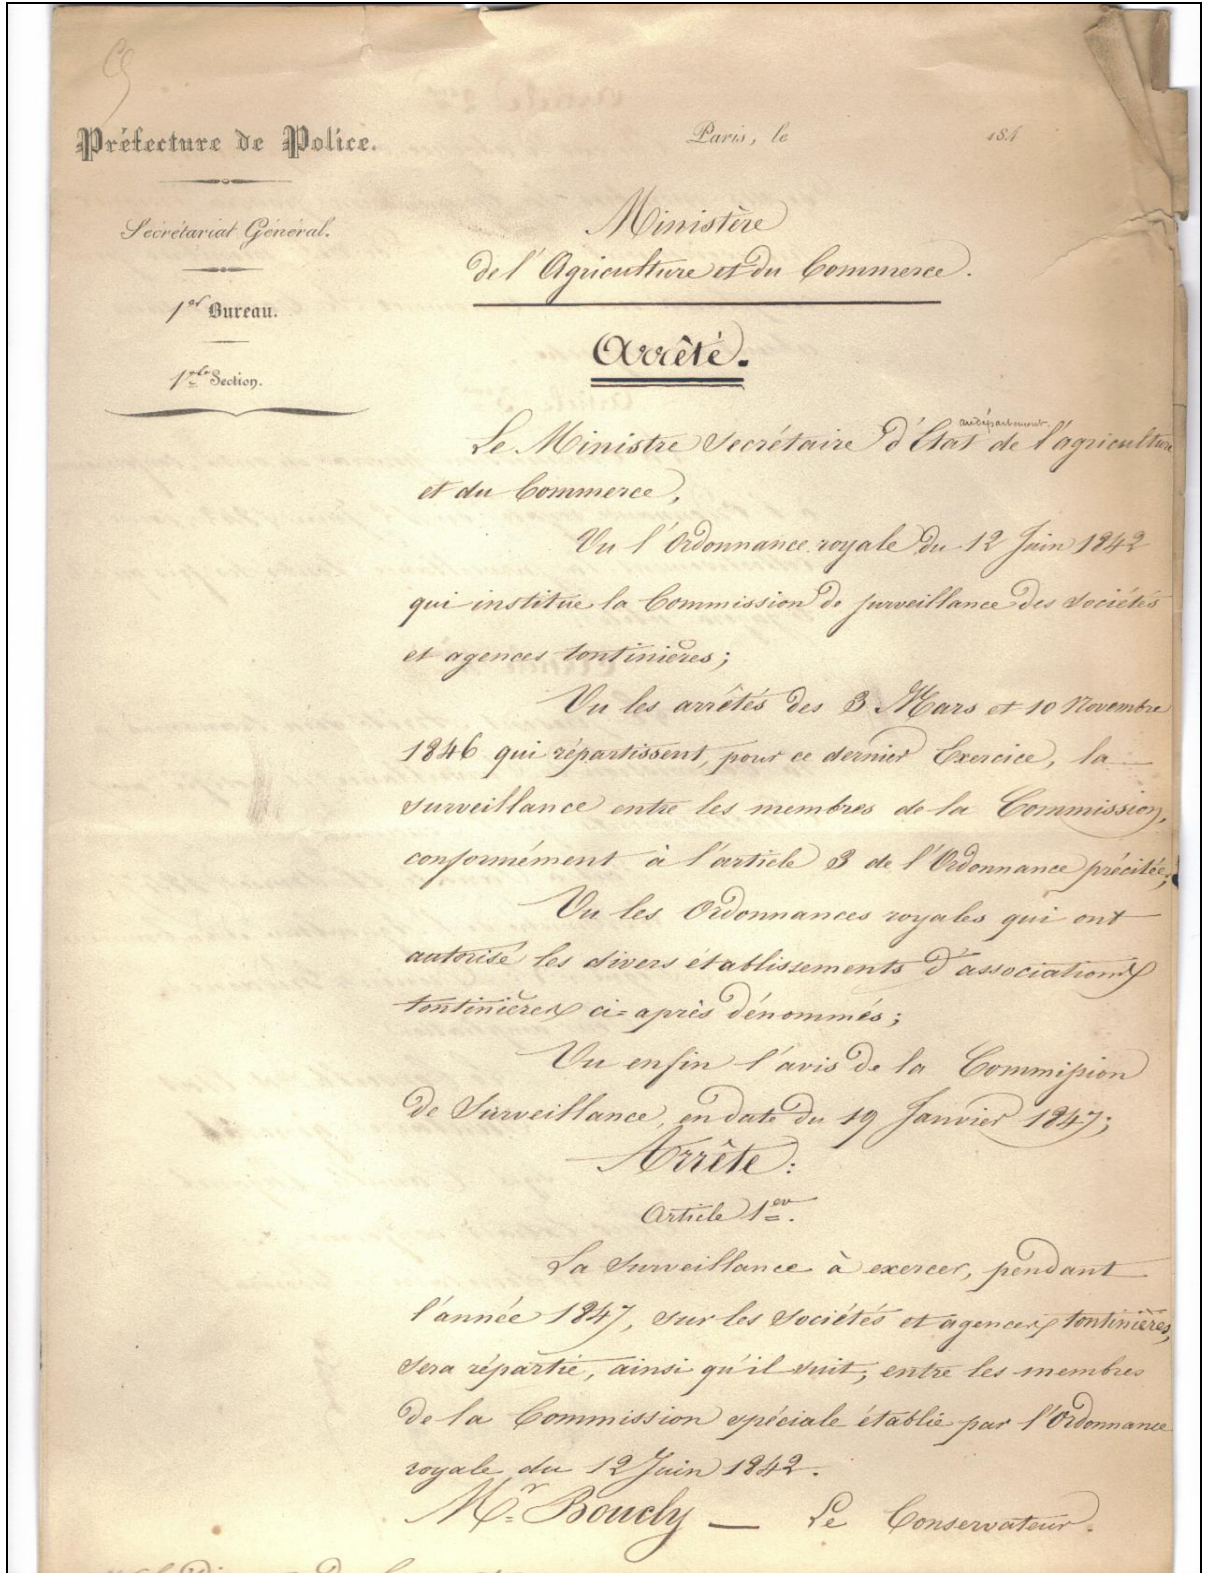 Préfecture de Police.
Secrétariat Général.
1er Bureau.
1ère Section.
Paris, le 184
Ministère
de l'Agriculture et du Commerce.
Arrêté.
au département
Le Ministre Secrétaire d'État de l'agriculture
et du Commerce,
Vu l'Ordonnance royale du 12 Juin 1842
qui institue la Commission de surveillance des Sociétés
et agences tontinières;
Vu les arrêtés des 3 Mars et 10 Novembre
1846 qui répartissent, pour ce dernier Exercice, la
surveillance entre les membres de la Commission,
conformément à l'article 3 de l'Ordonnance précitée;
Vu les Ordonnances royales qui ont
autorisé les divers établissements d'associations
tontinières ci-après dénommés;
Vu enfin l'avis de la Commission
de Surveillance, en date du 19 Janvier 1847;
Arrête:
Article 1er.
La Surveillance à exercer, pendant
l'année 1847, sur les Sociétés et agences tontinières,
sera répartie, ainsi qu'il suit, entre les membres
de la Commission spéciale établie par l'Ordonnance
royale du 12 Juin 1842.
Mr. Boucly — Le Conservateur.